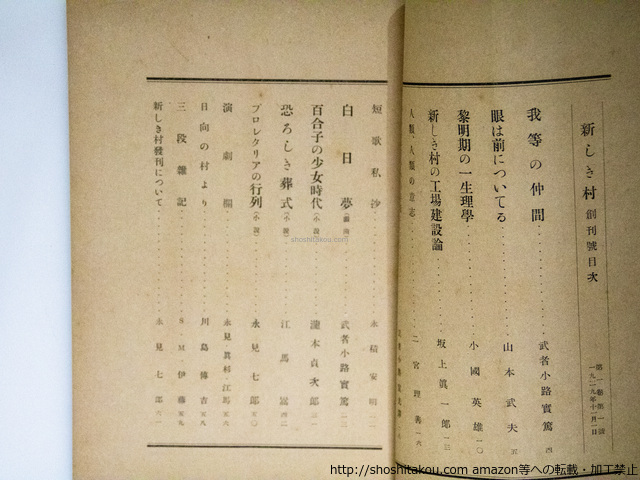 新しき村 創刊號目次
第一卷第一號
一九二九年十一月一日
我等の仲間 武者小路實篤 四
眼は前についてる 山本武夫 五
黎明期の一生理學 小國英雄 一〇
新しき村の工場建設論 坂上眞一郎 一三
人類、人類の意志 二宮理善 一六
短歌私沙 永積安明
白日夢 武者小路實篤
百合子の少女時代(小說) 瀧本貞次郎
恐ろしき葬式(小說) 江馬
プロレクリアの行列(小說) 永見七郎 五〇
演劇欄 永見・眞杉・江馬
日向の村より 川島傳吉
三段雜記 S.M.・伊藤
新しき村發刊について 永見七郎
shoshitakou.com
http://shoshitakou.com amazon等への転載・加工禁止